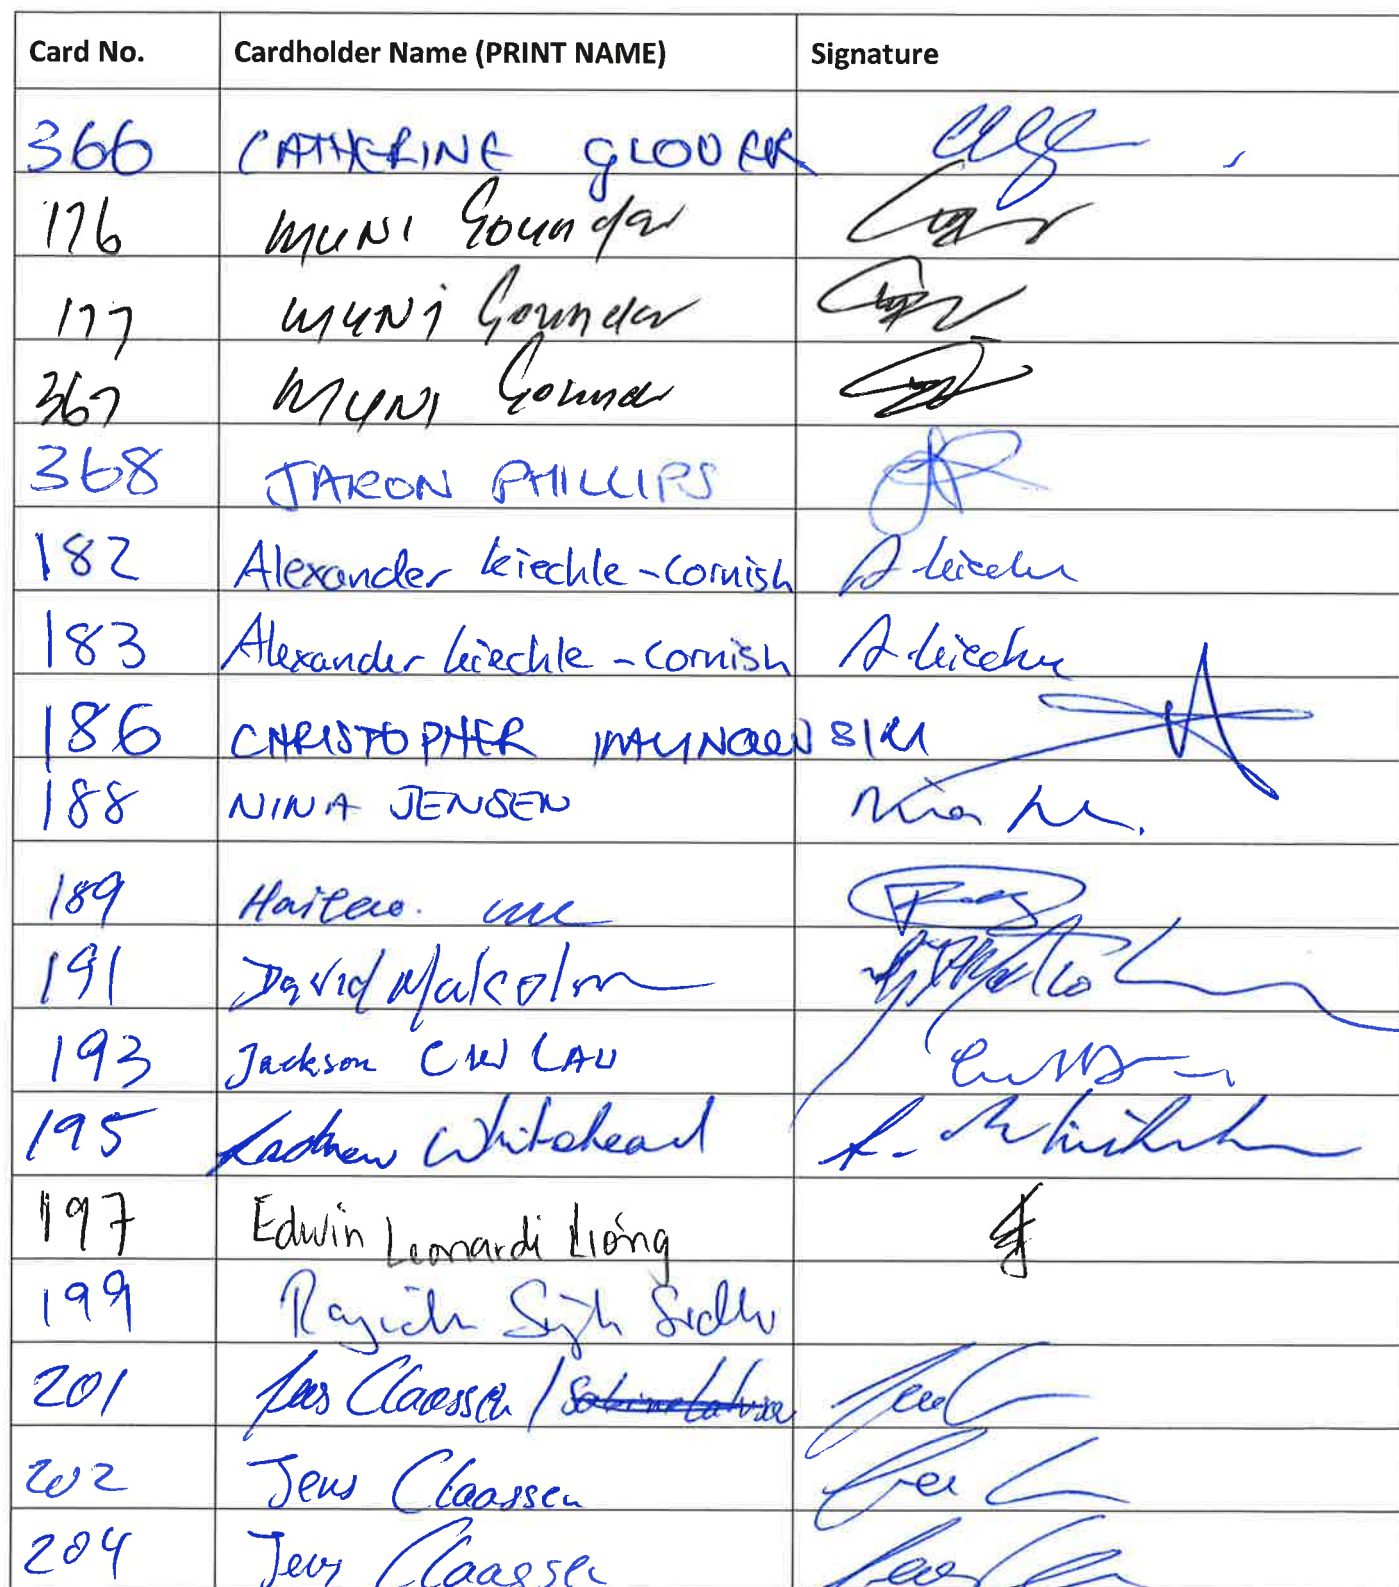 Card No. Cardholder Name (PRINT NAME) Signature
366 CATHERINE GLOVER
176 MUNI Gounder
177 MUNI Gounder
367 MUNI Gounder
368 JARON PHILLIPS
182 Alexander Kiechle-Cornish A Kiechle
183 Alexander Kiechle-Cornish A Kiechle
186 CHRISTOPHER
188 NINA JENSEN
189
191 David Malcolm
193 Jackson CW LAU
195 Andrew Whitehead A. Whitehead
197 Edwin Leonardi Liong
199 Singh Sidhu
201 Jens Claassen /
202 Jens Claassen
204 Jens Claassen